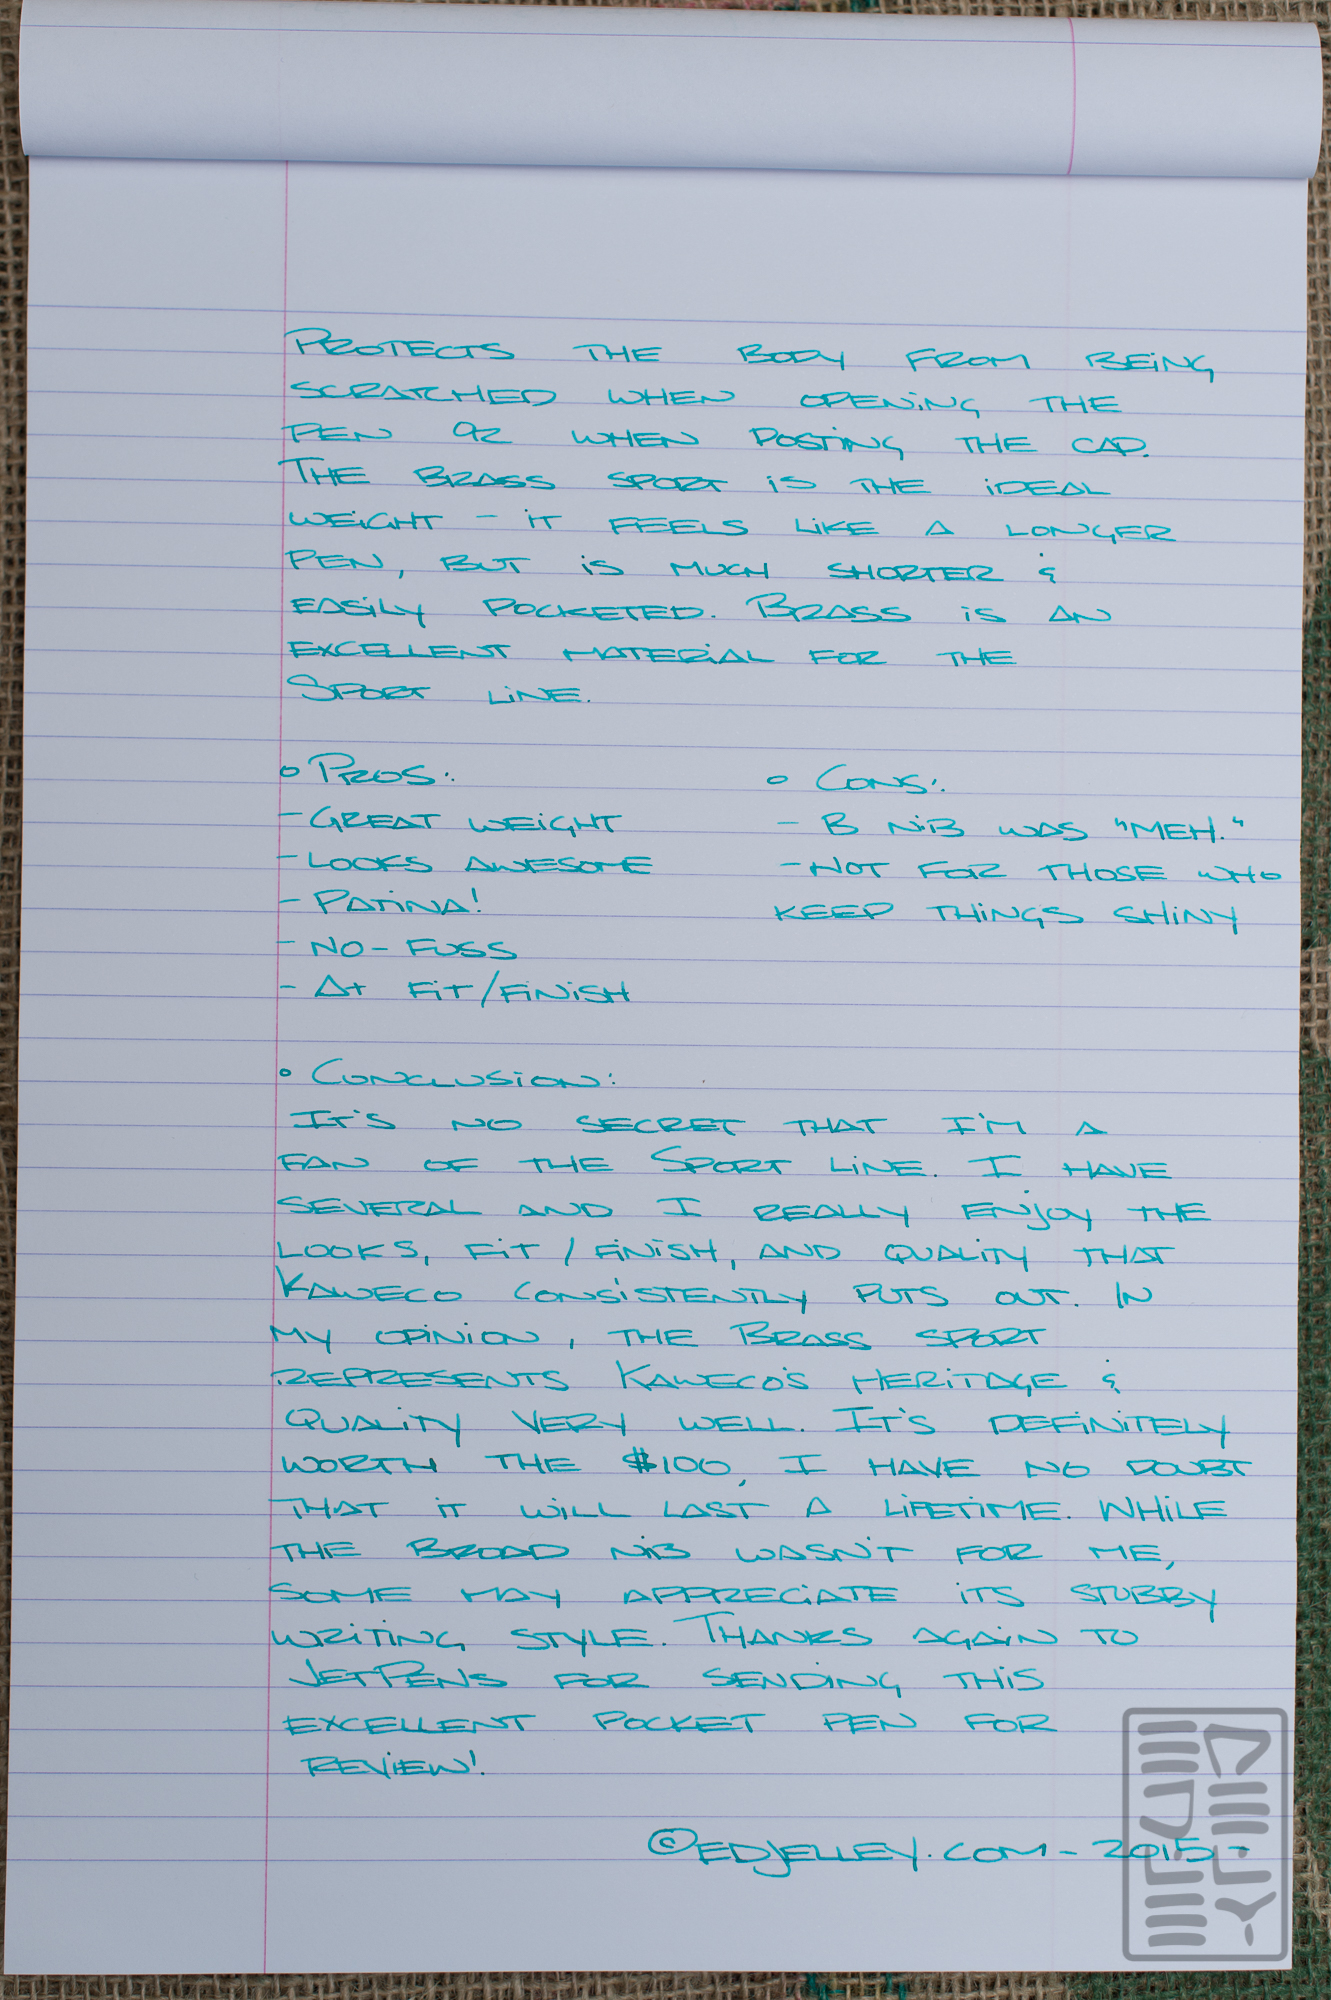 PROTECTS THE BODY FROM BEING
SCRATCHED WHEN OPENING THE
PEN OR WHEN POSTING THE CAP.
THE BRASS SPORT IS THE IDEAL
WEIGHT - IT FEELS LIKE A LONGER
PEN, BUT IS MUCH SHORTER &
EASILY POCKETED. BRASS IS AN
EXCELLENT MATERIAL FOR THE
SPORT LINE.
○ PROS:
- GREAT WEIGHT
- LOOKS AWESOME
- PATINA!
- NO-FUSS
- A+ FIT/FINISH
○ CONS:
- B NIB WAS "MEH."
- NOT FOR THOSE WHO
KEEP THINGS SHINY
○ CONCLUSION:
IT'S NO SECRET THAT I'M A
FAN OF THE SPORT LINE. I HAVE
SEVERAL AND I REALLY ENJOY THE
LOOKS, FIT / FINISH, AND QUALITY THAT
KAWECO CONSISTENTLY PUTS OUT. IN
MY OPINION, THE BRASS SPORT
REPRESENTS KAWECO'S HERITAGE &
QUALITY VERY WELL. IT'S DEFINITELY
WORTH THE $100, I HAVE NO DOUBT
THAT IT WILL LAST A LIFETIME. WHILE
THE BROAD NIB WASN'T FOR ME,
SOME MAY APPRECIATE ITS STUBBY
WRITING STYLE. THANKS AGAIN TO
JETPENS FOR SENDING THIS
EXCELLENT POCKET PEN FOR
REVIEW!
©EDJELLEY.COM - 2015 -